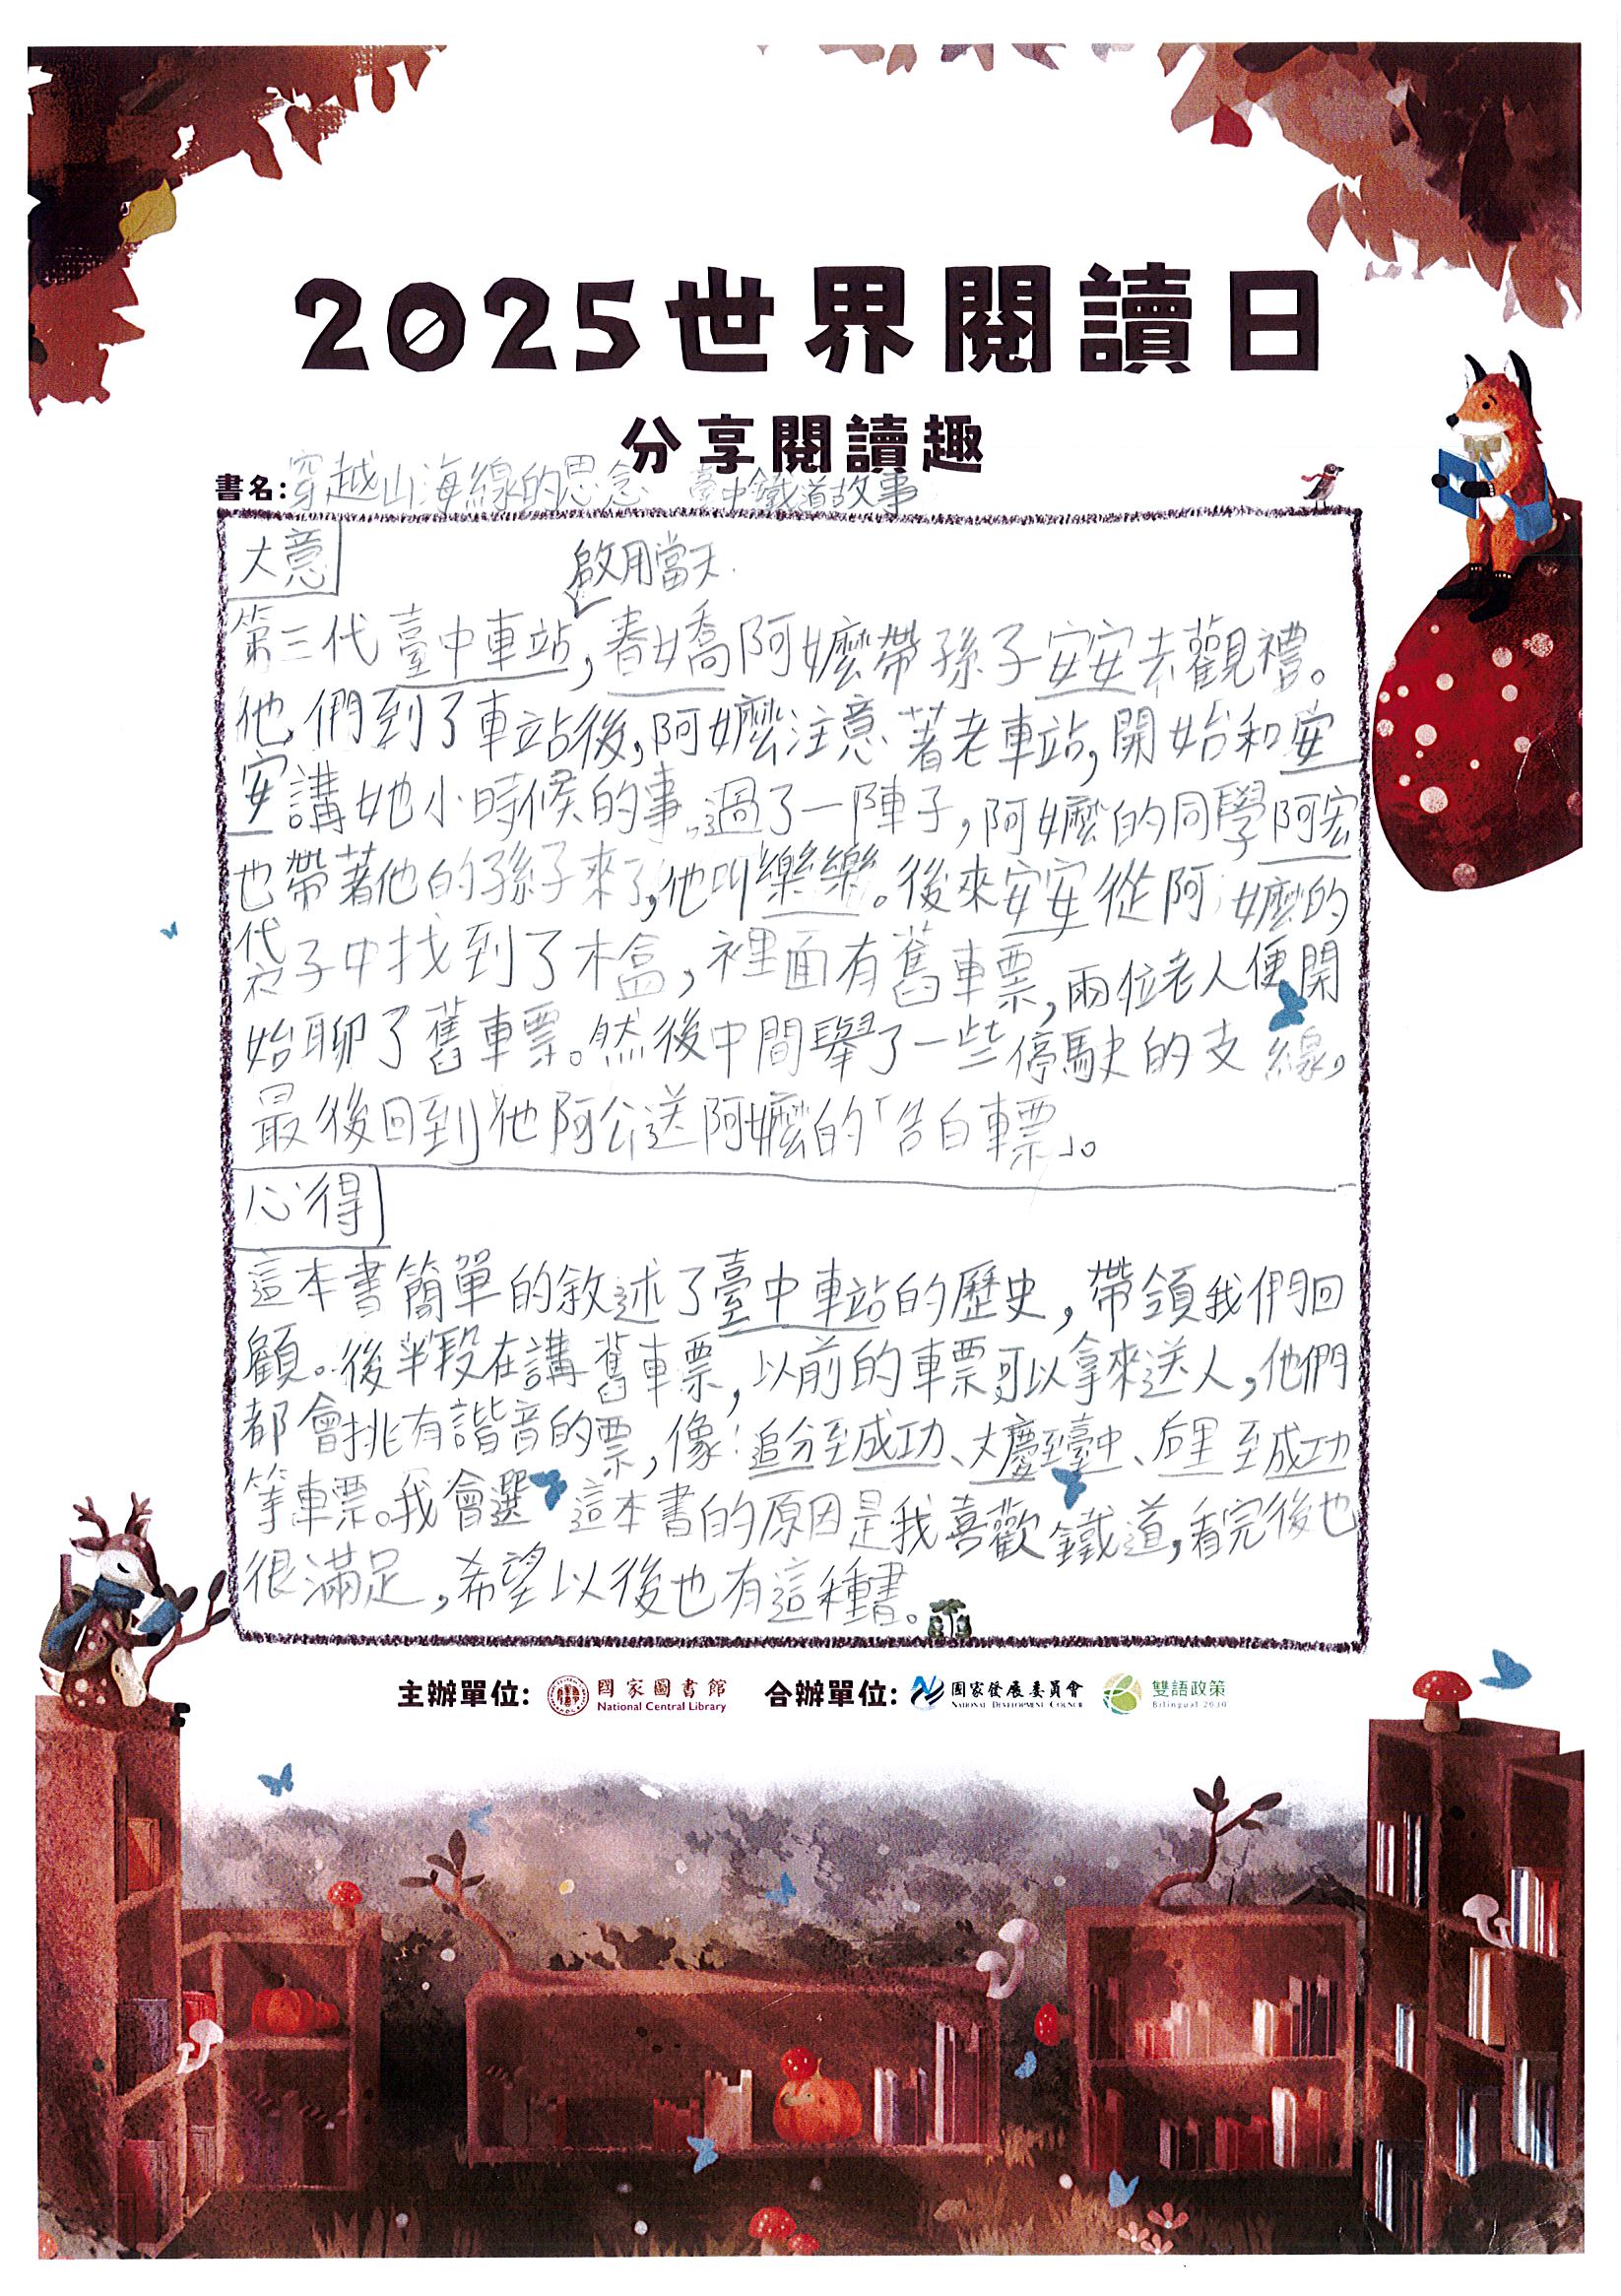 2025世界閱讀日
分享閱讀趣
書名:穿越山海線的思念 臺中鐵道故事
大意
啟用當天
第三代臺中車站,春嬌阿嬤帶孫子安安去觀禮。
他們到了車站後,阿嬤注意著老車站,開始和安
安講她小時候的事。過了一陣子,阿嬤的同學阿宏
也帶著他的孫子來了,他叫樂樂。後來安安從阿嬤的
袋子中找到了木盒,裡面有舊車票,兩位老人便開
始聊了舊車票。然後中間舉了一些停駛的支線,
最後回到他阿公送阿嬤的「告白車票」。
心得
這本書簡單的敘述了臺中車站的歷史,帶領我們回
顧。後半段在講舊車票,以前的車票可以拿來送人,他們
都會挑有諧音的票,像:追分至成功、大慶至臺中、后里至成功
等車票。我會選這本書的原因是我喜歡鐵道,看完後也
很滿足,希望以後也有這種書。
主辦單位: 國家圖書館 National Central Library 合辦單位: 國家發展委員會 National Development Council 雙語政策 Bilingual 2030